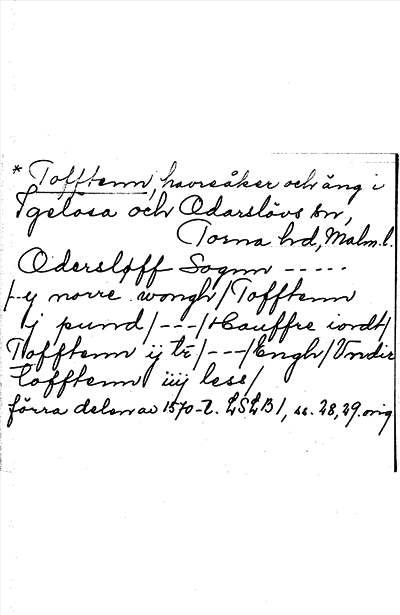 * Tofftenn, havreåker och äng i
Igelösa och Odarslövs sn,
Torna hd, Malm. l.
Odersløff Sogнн -----
/-y norre wongh/Tofftenn
ij pund/---/Hauffre iordt/
Tofftenn ij tr/---/Engh/Vndir
tofftenn iiij less/
förra delen av 1570-t. LSLB 1, ss. 28, 29. orig